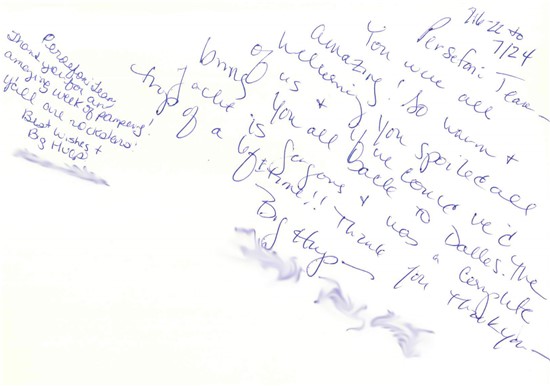 Persefoni team,
Thank you for an
amazing week of pampering!
Y'all are rockstars!
Best wishes +
Big Hugs
7/16-22 to
7/24
Persefoni Team —
You were all
amazing! So warm +
welcoming. You spoiled all
of us + if we could we'd
bring you all back to Dallas. The
yacht is gorgeous + was a complete
trip of a lifetime!! Thank you Thank you —
Big Hugs —